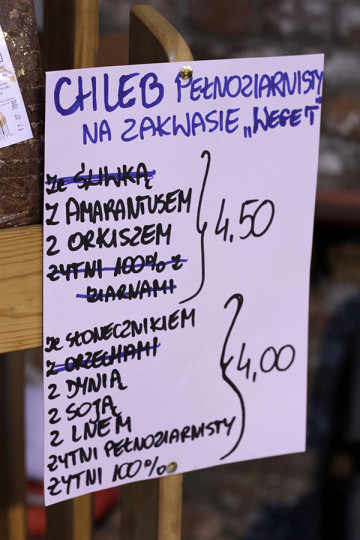 CHLEB PEŁNOZIARNISTY
NA ZAKWASIE „WEGET"
ze ŚLIWKĄ
Z AMARANTUSEM
Z ORKISZEM
ŻYTNI 100% Z
ZIARNAMI
4.50
ze SŁONECZNIKIEM
Z ORZECHAMI
Z DYNIĄ
Z SOJĄ
Z LNEM
ŻYTNI PEŁNOZIARNISTY
ŻYTNI 100%
4,00